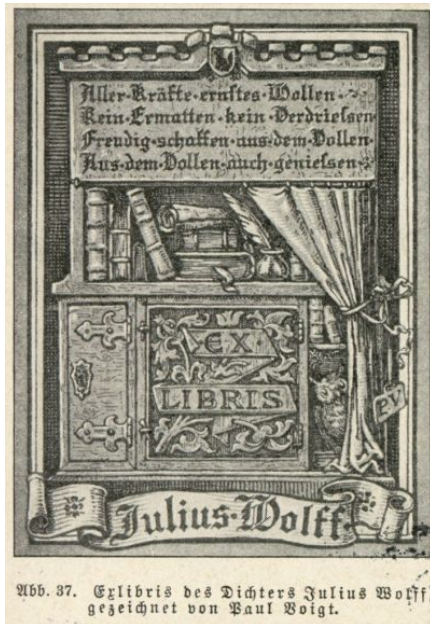 Aller·Kräfte·ernstes·Wollen·
Kein·Ermatten·kein·Verdriessen
Freudig·schaffen·aus·dem·Vollen·
Aus·dem·Vollen·auch·geniessen·
EX
LIBRIS
PV
Julius·Wolff·
Abb. 37. Exlibris des Dichters Julius Wolff
gezeichnet von Paul Voigt.